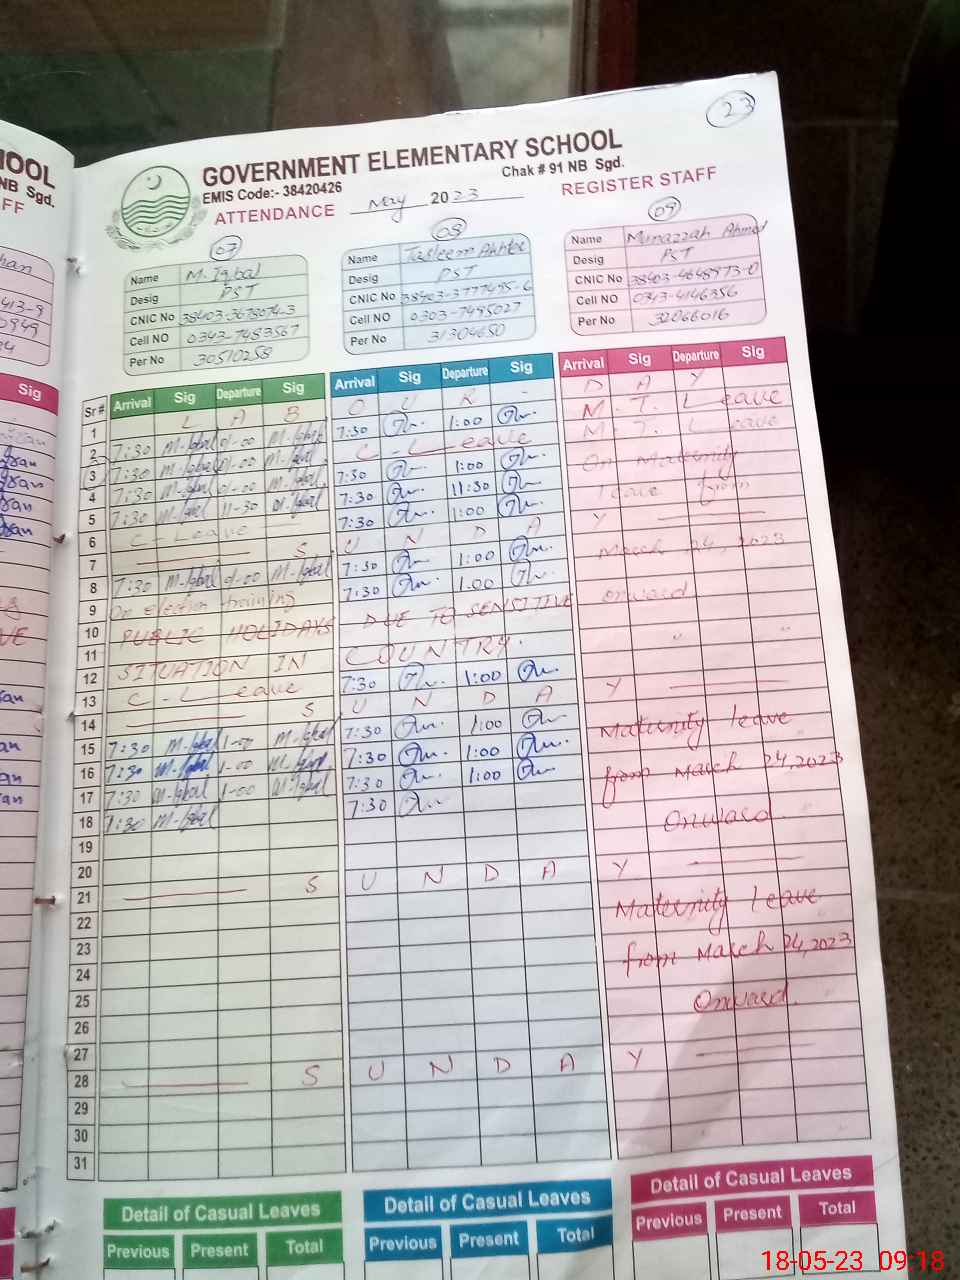 23
HOOL
NB Sgd.
FF
GOVERNMENT ELEMENTARY SCHOOL
EMIS Code:- 38420426
Chak # 91 NB Sgd.
ATTENDANCE May 2023 REGISTER STAFF
07
Name M. Iqbal
Desig PST
CNIC No 38403-3678074-3
Cell NO 0343-7483567
Per No 30510258
08
Name Tasleem Akhter
Desig PST
CNIC No 38403-3777495-6
Cell NO 0303-7495027
Per No 31304650
09
Name Munazzah Ahmed
Desig PST
CNIC No 38403-4648973-0
Cell NO 0343-4146356
Per No 32066016
Sig
Sr # Arrival Sig Departure Sig Arrival Sig Departure Sig Arrival Sig Departure Sig
1 L A B O U R - D A Y
2 7:30 M-Iqbal 01-00 M-Iqbal 7:30 1:00 M.T. Leave
3 7:30 M-Iqbal 01-00 M-Iqbal C - Leave M.T. Leave
4 7:30 M-Iqbal 01-00 M-Iqbal 7:30 1:00 On Maternity
5 7:30 M-Iqbal 11-30 M-Iqbal 7:30 11:30 leave from
6 C - Leave 7:30 1:00
7 S U N D A Y
8 7:30 M-Iqbal 01-00 M-Iqbal 7:30 1:00 March 24, 2023
9 On election training 7:30 1:00
10 PUBLIC HOLIDAYS DUE TO SENSITIVE onward
11
12 SITUATION IN COUNTRY.
13 C - Leave 7:30 1:00
14 S U N D A Y
15 7:30 M-Iqbal 1-00 M-Iqbal 7:30 1:00 Maternity leave
16 7:30 M-Iqbal 1-00 M-Iqbal 7:30 1:00
17 7:30 M-Iqbal 1-00 M-Iqbal 7:30 1:00 from March 24, 2023
18 7:30 M-Iqbal 7:30
19 Onward.
20
21 S U N D A Y
22 Maternity Leave
23
24 from March 24, 2023
25 Onward.
26
27
28 S U N D A Y
29
30
31
Detail of Casual Leaves Detail of Casual Leaves Detail of Casual Leaves
Previous Present Total Previous Present Total Previous Present Total
18-05-23 09:18